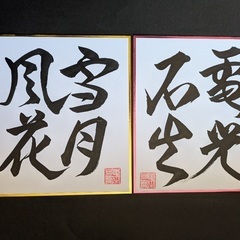 電光
石火
雪月
風花